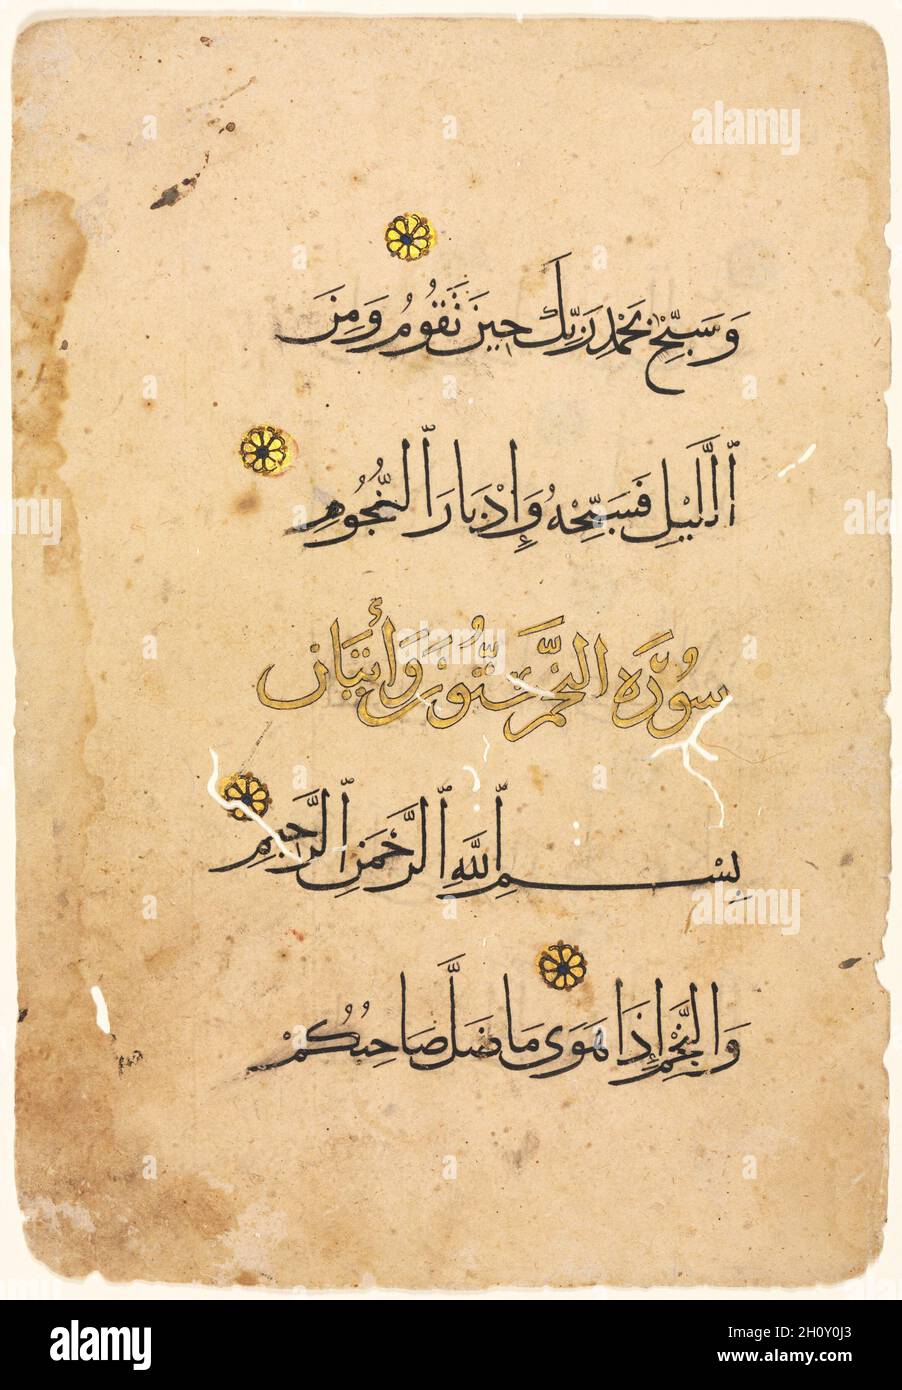 وَسَبِّحْ بِحَمْدِ رَبِّكَ حِينَ تَقُومُ وَمِنَ
ٱلَّيْلِ فَسَبِّحْهُ وَإِدْبَارَ ٱلنُّجُومِ
سُورَة النَّجْم سِتُّونَ وَأيَتَان
بِسْمِ ٱللَّهِ ٱلرَّحْمَنِ ٱلرَّحِيمِ
وَالنَّجْمِ إِذَا هَوَى مَا ضَلَّ صَاحِبُكُمْ
alamy
Image ID: 2H0Y0J3
www.alamy.com